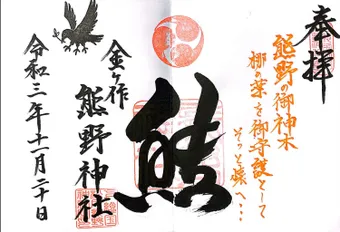 奉拝
熊野の御神木
梛の葉を御守護として
そっと懐へ…
熊
金ヶ作
熊野神社
令和三年十一月二十日